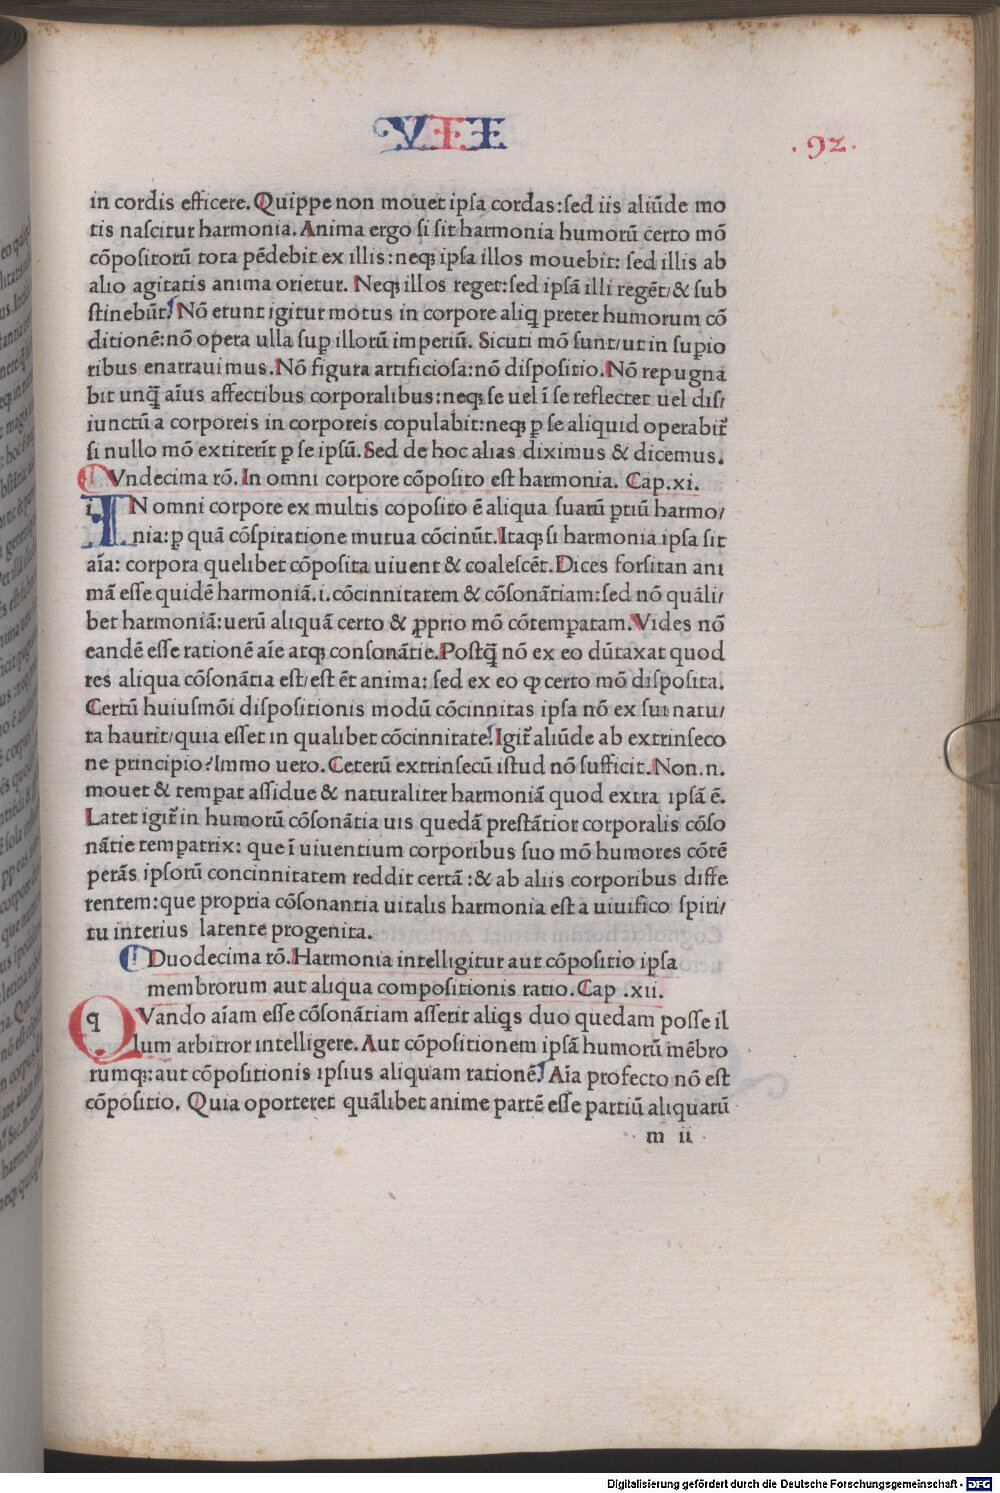 VII
.92.
in cordis efficere. Quippe non mouet ipsa cordas:sed iis aliũde mo
tis nascitur harmonia. Anima ergo si sit harmonia humorũ certo mõ
cõpositorũ tota pẽdebit ex illis:neqꝫ ipsa illos mouebit: sed illis ab
alio agitatis anima orietur. Neqꝫ illos reget:sed ipsã illi regẽt/& sub
stinebũt. Nõ erunt igitur motus in corpore aliq̃ preter humorum cõ
ditionẽ:nõ opera ulla suꝑ illorũ imperiũ. Sicuti mõ sunt/ut in suꝑio
ribus enarrauimus. Nõ figura artificiosa:nõ dispositio. Nõ repugna
bit unq̃ aĩus affectibus corporalibus:neqꝫ se uel ĩ se reflectet uel dis/
iunctũ a corporeis in corporeis copulabit:neqꝫ ꝑ se aliquid operabit᷑
si nullo mõ extiterĩt ꝑ se ipsũ. Sed de hoc alias diximus & dicemus.
Vndecima rõ. In omni corpore cõposito est harmonia. Cap.xi.
i IN omni corpore ex multis coposito ẽ aliqua suarũ ꝑtiũ harmo/
nia:ꝑ quã cõspiratione mutua cõcinũt. Itaqꝫ si harmonia ipsa sit
aĩa: corpora quelibet cõposita uiuent & coalescẽt. Dices forsitan ani
mã esse quidẽ harmoniã.i.cõcinnitatem & cõsonãtiam:sed nõ quãli/
bet harmoniã:uerũ aliquã certo & ꝓprio mõ cõtemꝑatam. Vides nõ
eandẽ esse rationẽ aĩe atqꝫ consonãtie. Postq̃ nõ ex eo dũtaxat quod
res aliqua cõsonãtia est/est ẽt anima: sed ex eo ꝙ certo mõ disposita.
Certũ huiusmõi dispositionis modũ cõcinnitas ipsa nõ ex sui natu/
ra haurit/quia esset in qualibet cõcinnitate. Igit᷑ aliũde ab extrinseco
ne principio? Immo uero. Ceterũ extrinsecũ istud nõ sufficit. Non.n.
mouet & temꝑat assidue & naturaliter harmoniã quod extra ipsã ẽ.
Latet igit᷑ in humorũ cõsonãtia uis quedã prestãtior corporalis cõso
nãtie temꝑatrix: que ĩ uiuentium corporibus suo mõ humores cõtẽ
perãs ipsorũ concinnitatem reddit certã:& ab aliis corporibus diffe
rentem:que propria cõsonantia uitalis harmonia est a uiuifico spiri/
tu interius latente progenita.
Duodecima rõ. Harmonia intelligitur aut cõpositio ipsa
membrorum aut aliqua compositionis ratio. Cap .xii.
q QVando aĩam esse cõsonãtiam asserit aliq̃s duo quedam posse il
lum arbitror intelligere. Aut cõpositionem ipsã humorũ mẽbro
rumqꝫ:aut cõpositionis ipsius aliquam rationẽ. Aĩa profecto nõ est
cõpositio. Quia oporteret quãlibet anime partẽ esse partiũ aliquarũ
m ii
Digitalisierung gefördert durch die Deutsche Forschungsgemeinschaft - DFG